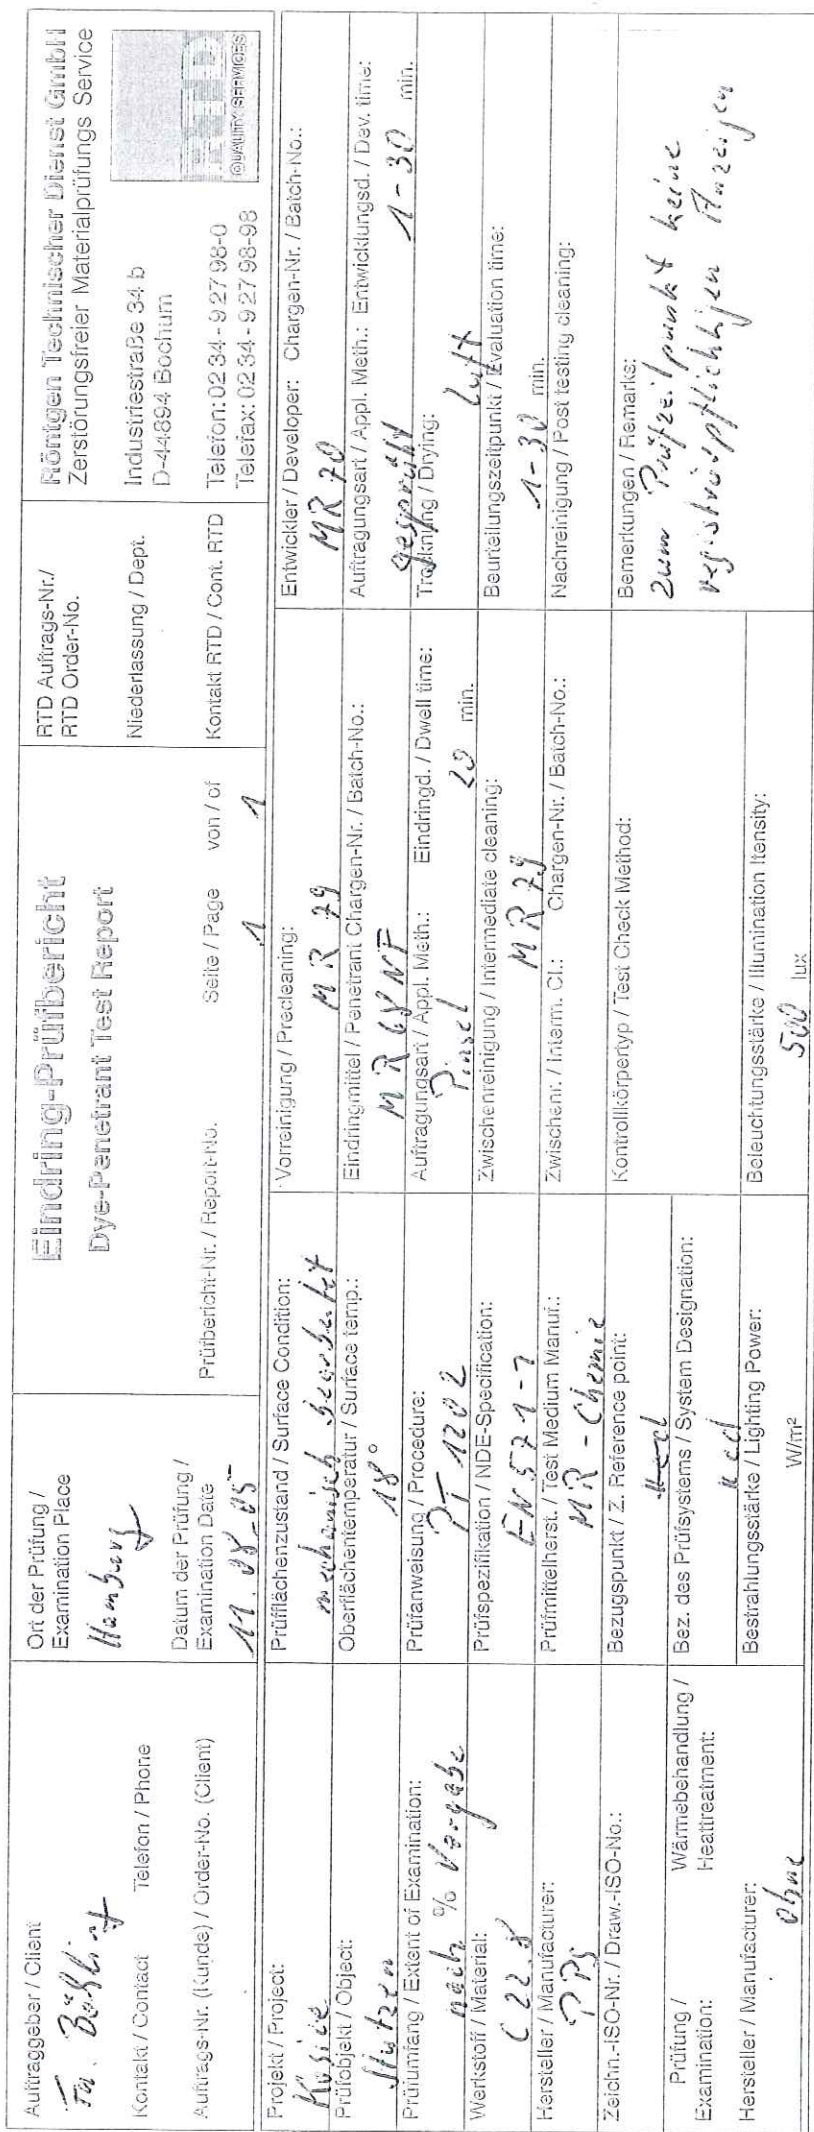 Auftraggeber / Client
Fa. Böhling
Kontakt / Contact Telefon / Phone
Auftrags-Nr. (Kunde) / Order-No. (Client)
Ort der Prüfung /
Examination Place
Hamburg
Datum der Prüfung /
Examination Date
11.08.05
Eindring-Prüfbericht
Dye-Penetrant Test Report
Prüfbericht-Nr. / Report-No. Seite / Page von / of
1 1
RTD Auftrags-Nr./
RTD Order-No.
Niederlassung / Dept.
Kontakt RTD / Cont. RTD
Röntgen Technischer Dienst GmbH
Zerstörungsfreier Materialprüfungs Service
Industriestraße 34 b
D-44894 Bochum
Telefon: 02 34 - 9 27 98-0
Telefax: 02 34 - 9 27 98-98
RTD
QUALITY SERVICES
Projekt / Project:
Kosice
Prüfobjekt / Object:
Stutzen
Prüfumfang / Extent of Examination:
nach % Vorgabe
Werkstoff / Material:
C 22.8
Hersteller / Manufacturer:
PPS
Zeichn.-ISO-Nr. / Draw.-ISO-No.:
Prüfung / Wärmebehandlung /
Examination: Heattreatment:
Hersteller / Manufacturer:
ohne
Prüfflächenzustand / Surface Condition:
mechanisch bearbeitet
Oberflächentemperatur / Surface temp.:
18°
Prüfanweisung / Procedure:
PT 1202
Prüfspezifikation / NDE-Specification:
EN 571-1
Prüfmittelherst. / Test Medium Manuf.:
MR-Chemie
Bezugspunkt / Z. Reference point:
Bez. des Prüfsystems / System Designation:
Bestrahlungsstärke / Lighting Power:
W/m²
Vorreinigung / Precleaning:
MR 79
Eindringmittel / Penetrant Chargen-Nr. / Batch-No.:
MR 68 NF
Auftragungsart / Appl. Meth.: Eindringd. / Dwell time:
Pinsel 20 min.
Zwischenreinigung / Intermediate cleaning:
MR 79
Zwischenr. / Interm. Cl.: Chargen-Nr. / Batch-No.:
Kontrollkörpertyp / Test Check Method:
Beleuchtungsstärke / Illumination Itensity:
500 lux
Entwickler / Developer: Chargen-Nr. / Batch-No.:
MR 70
Auftragungsart / Appl. Meth.: Entwicklungsd. / Dev. time:
gesprüht 1-30 min.
Trocknung / Drying:
Luft
Beurteilungszeitpunkt / Evaluation time:
1-30 min.
Nachreinigung / Post testing cleaning:
Bemerkungen / Remarks:
zum Prüfzeitpunkt keine
registrierpflichtigen Anzeigen